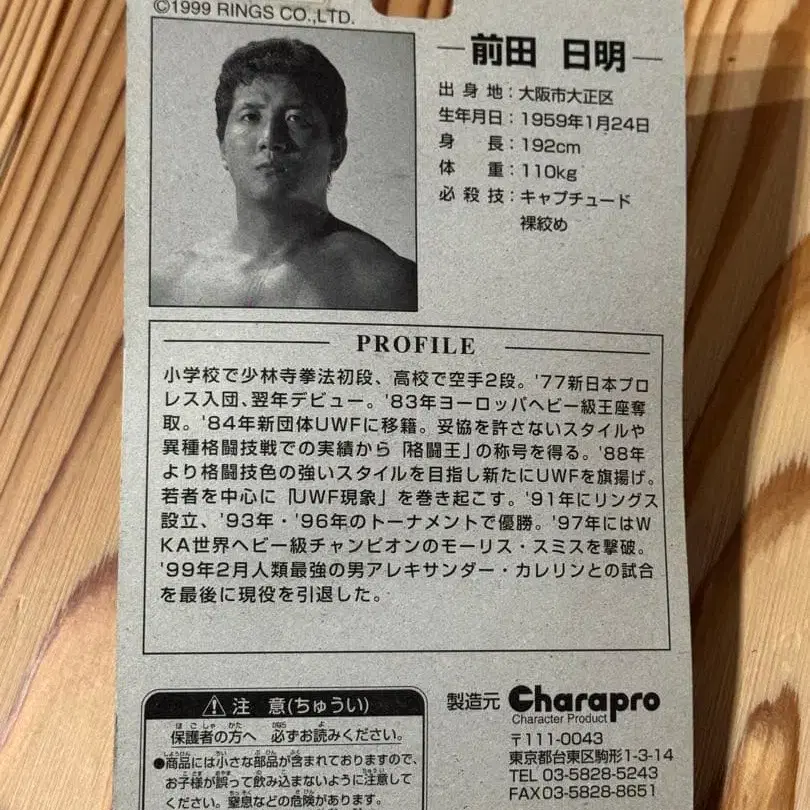 ©1999 RINGS CO.,LTD.
前田 日明
出身地：大阪市大正区
生年月日：1959年1月24日
身長：192cm
体重：110kg
必殺技：キャプチュード
裸絞め
PROFILE
小学校で少林寺拳法初段、高校で空手2段。'77新日本プロ
レス入団、翌年デビュー。'83年ヨーロッパヘビー級王座奪
取。'84年新団体UWFに移籍。妥協を許さないスタイルや
異種格闘技戦での実績から「格闘王」の称号を得る。'88年
より格闘技色の強いスタイルを目指し新たにUWFを旗揚げ。
若者を中心に「UWF現象」を巻き起こす。'91年にリングス
設立、'93年・'96年のトーナメントで優勝。'97年にはW
KA世界ヘビー級チャンピオンのモーリス・スミスを撃破。
'99年2月人類最強の男アレキサンダー・カレリンとの試合
を最後に現役を引退した。
注 意(ちゅうい)
保護者の方へ 必ずお読みください。
●商品には小さな部品が含まれておりますので、
お子様が誤って飲み込まないように注意して
ください。窒息などの危険があります。
製造元 Charapro
Character Product
〒111-0043
東京都台東区駒形1-3-14
TEL 03-5828-5243
FAX03-5828-8651